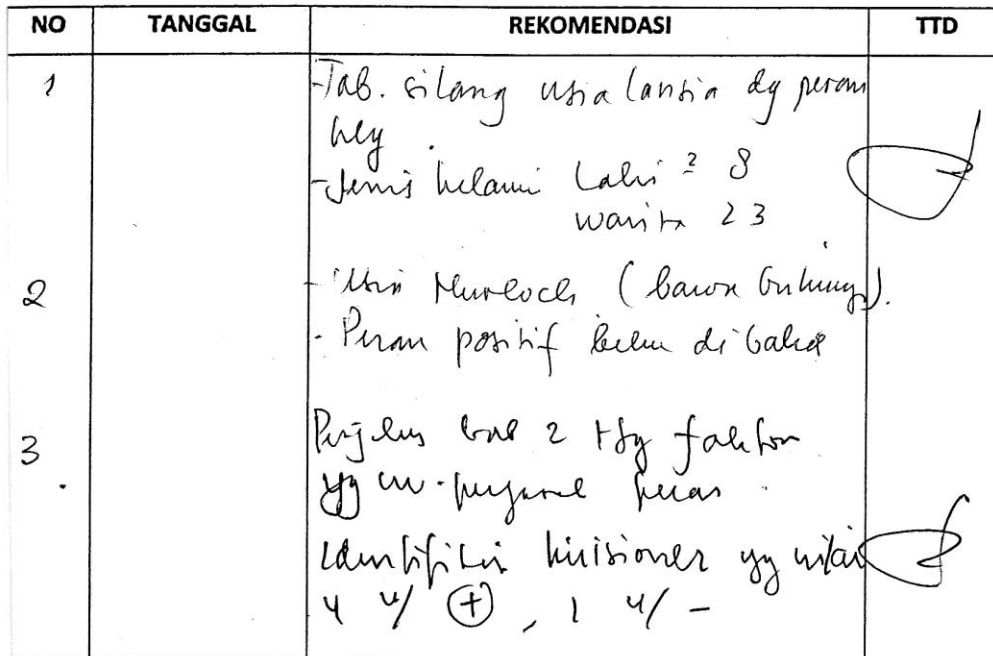 NO TANGGAL REKOMENDASI TTD
1 - Tab. silang usia lansia dg peran
kelg.
- Jenis kelamin Laki² 8
wanita 23
2 - Usia Hurlock (bawa buku).
- Peran positif belum dibahas
3 Perjelas bab 2 ttg faktor
yg peran
Identifikasi kuisioner yg nilai
4 u/ (+), 1 u/ -